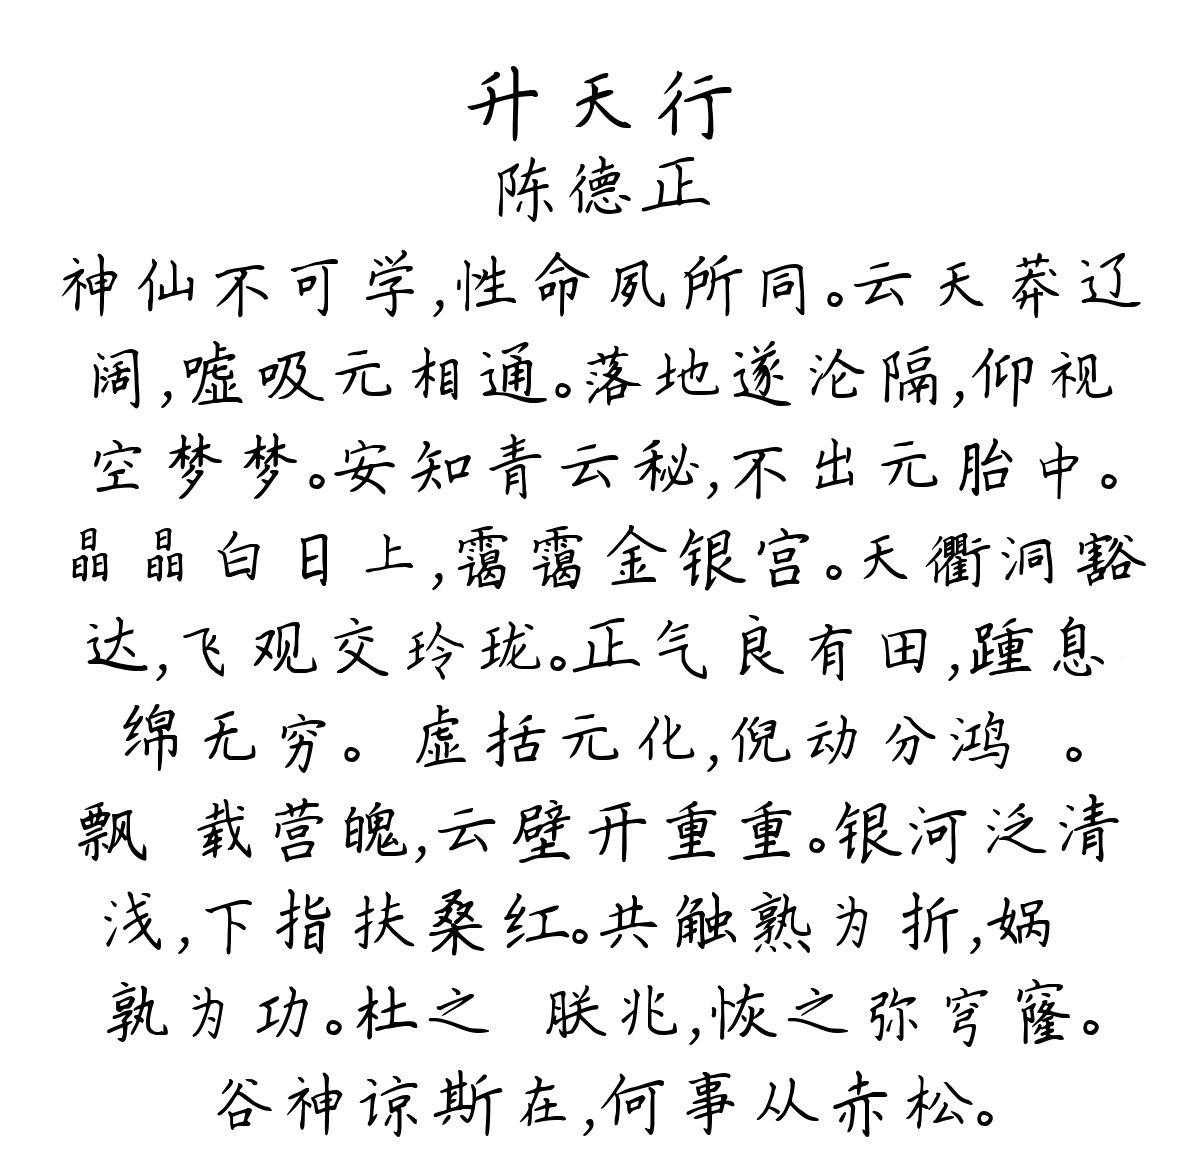 升天行
陈德正
神仙不可学,性命夙所同。云天莽辽
阔,嘘吸元相通。落地遂沦隔,仰视
空梦梦。安知青云秘,不出元胎中。
晶晶白日上,霭霭金银宫。天衢洞豁
达,飞观交玲珑。正气良有田,踵息
绵无穷。虚括元化,倪动分鸿 。
飘 载营魄,云壁开重重。银河泛清
浅,下指扶桑红。共触熟为折,娲
孰为功。杜之 朕兆,恢之弥穹窿。
谷神谅斯在,何事从赤松。